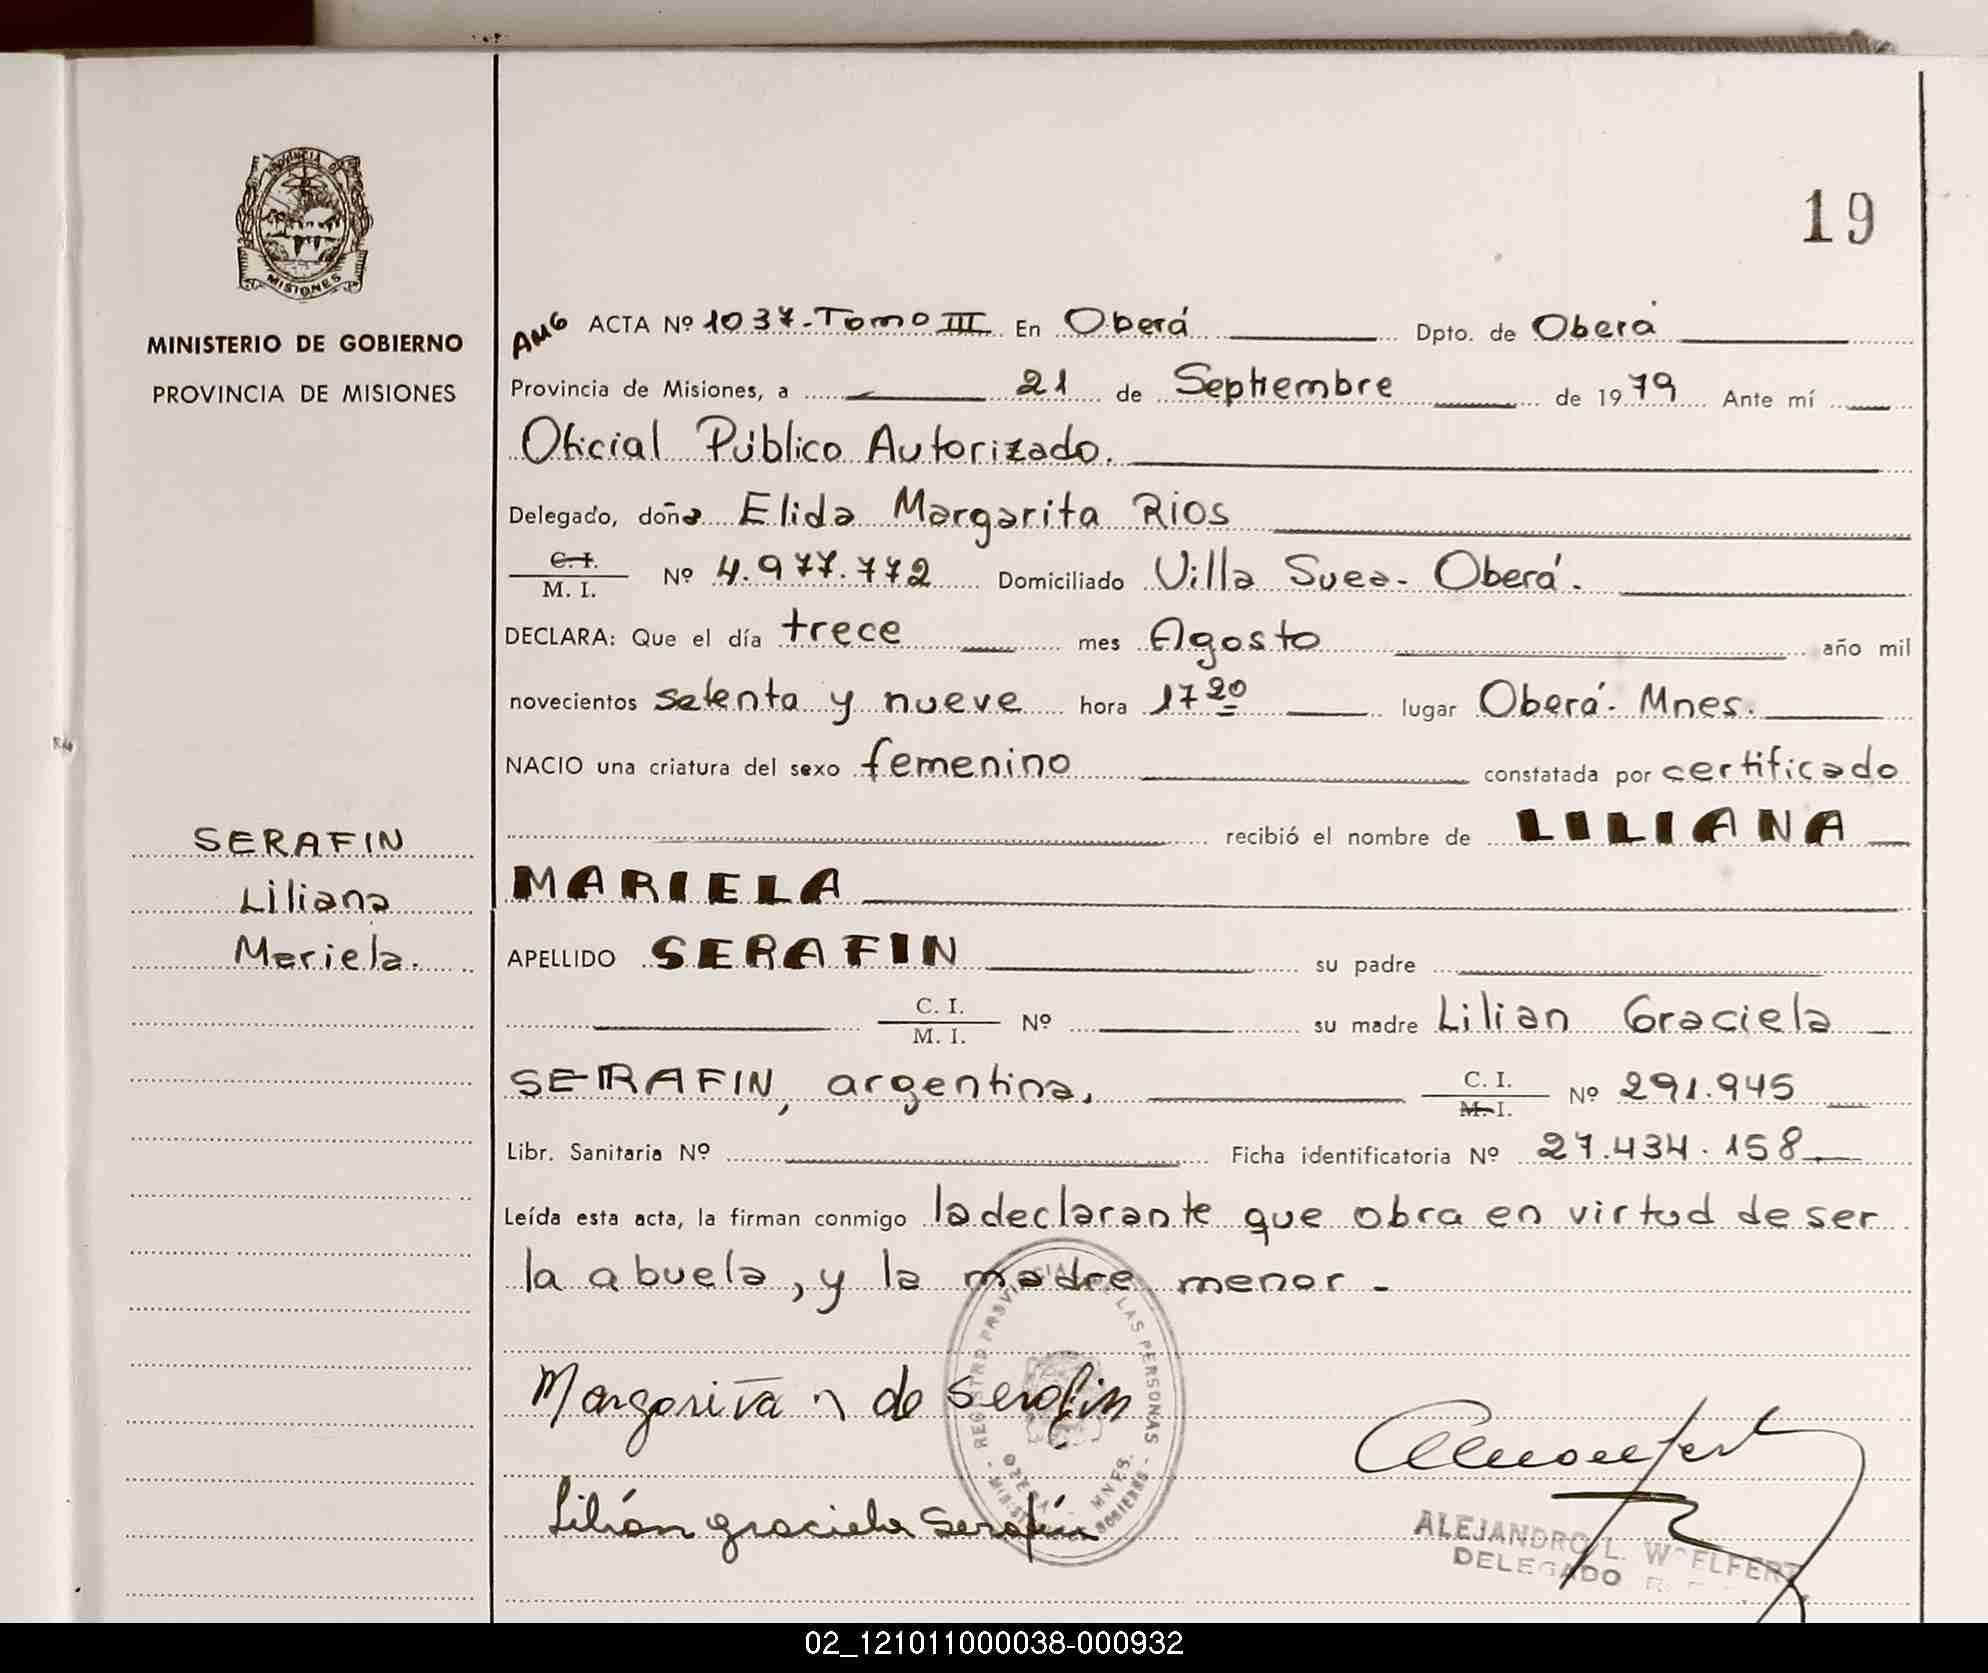 PROVINCIA DE
MISIONES
MINISTERIO DE GOBIERNO
PROVINCIA DE MISIONES
19
AMG ACTA Nº 1037-Tomo III En Oberá Dpto. de Oberá
Provincia de Misiones, a 21 de Septiembre de 1979 Ante mí
Oficial Público Autorizado.
Delegado, doña Elida Margarita Rios
C. I. / M. I. Nº 4.977.772 Domiciliado Villa Svea- Oberá.
DECLARA: Que el día trece mes Agosto año mil
novecientos setenta y nueve hora 17 20 lugar Oberá- Mnes.
NACIO una criatura del sexo femenino constatada por certificado
recibió el nombre de LILIANA
MARIELA
SERAFIN
Liliana
Mariela.
APELLIDO SERAFIN su padre
C. I. / M. I. Nº su madre Lilian Graciela
SERAFIN, argentina, C. I. / M. I. Nº 291.945
Libr. Sanitaria Nº Ficha identificatoria Nº 27.434.158
Leída esta acta, la firman conmigo la declarante que obra en virtud de ser
la abuela, y la madre menor-
REGISTRO PROVINCIAL DE LAS PERSONAS
OBERA MNES.
Margarita de Serafin
Lilián graciela Serafín
ALEJANDRO L. WOELFERT
DELEGADO
02_121011000038-000932